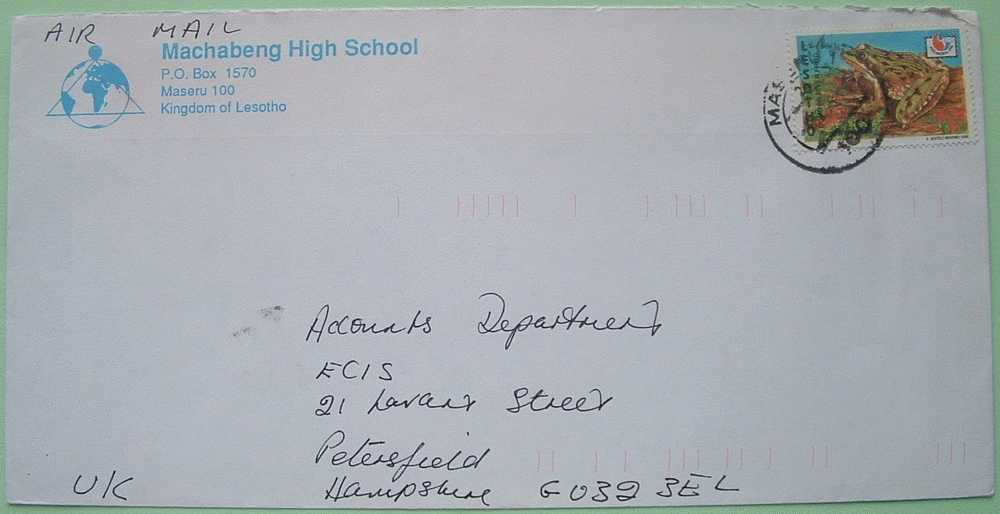 AIR MAIL
Machabeng High School
P.O. Box 1570
Maseru 100
Kingdom of Lesotho
Accounts Department
ECIS
21 Lavant Street
Petersfield
Hampshire GU32 3EL
UK